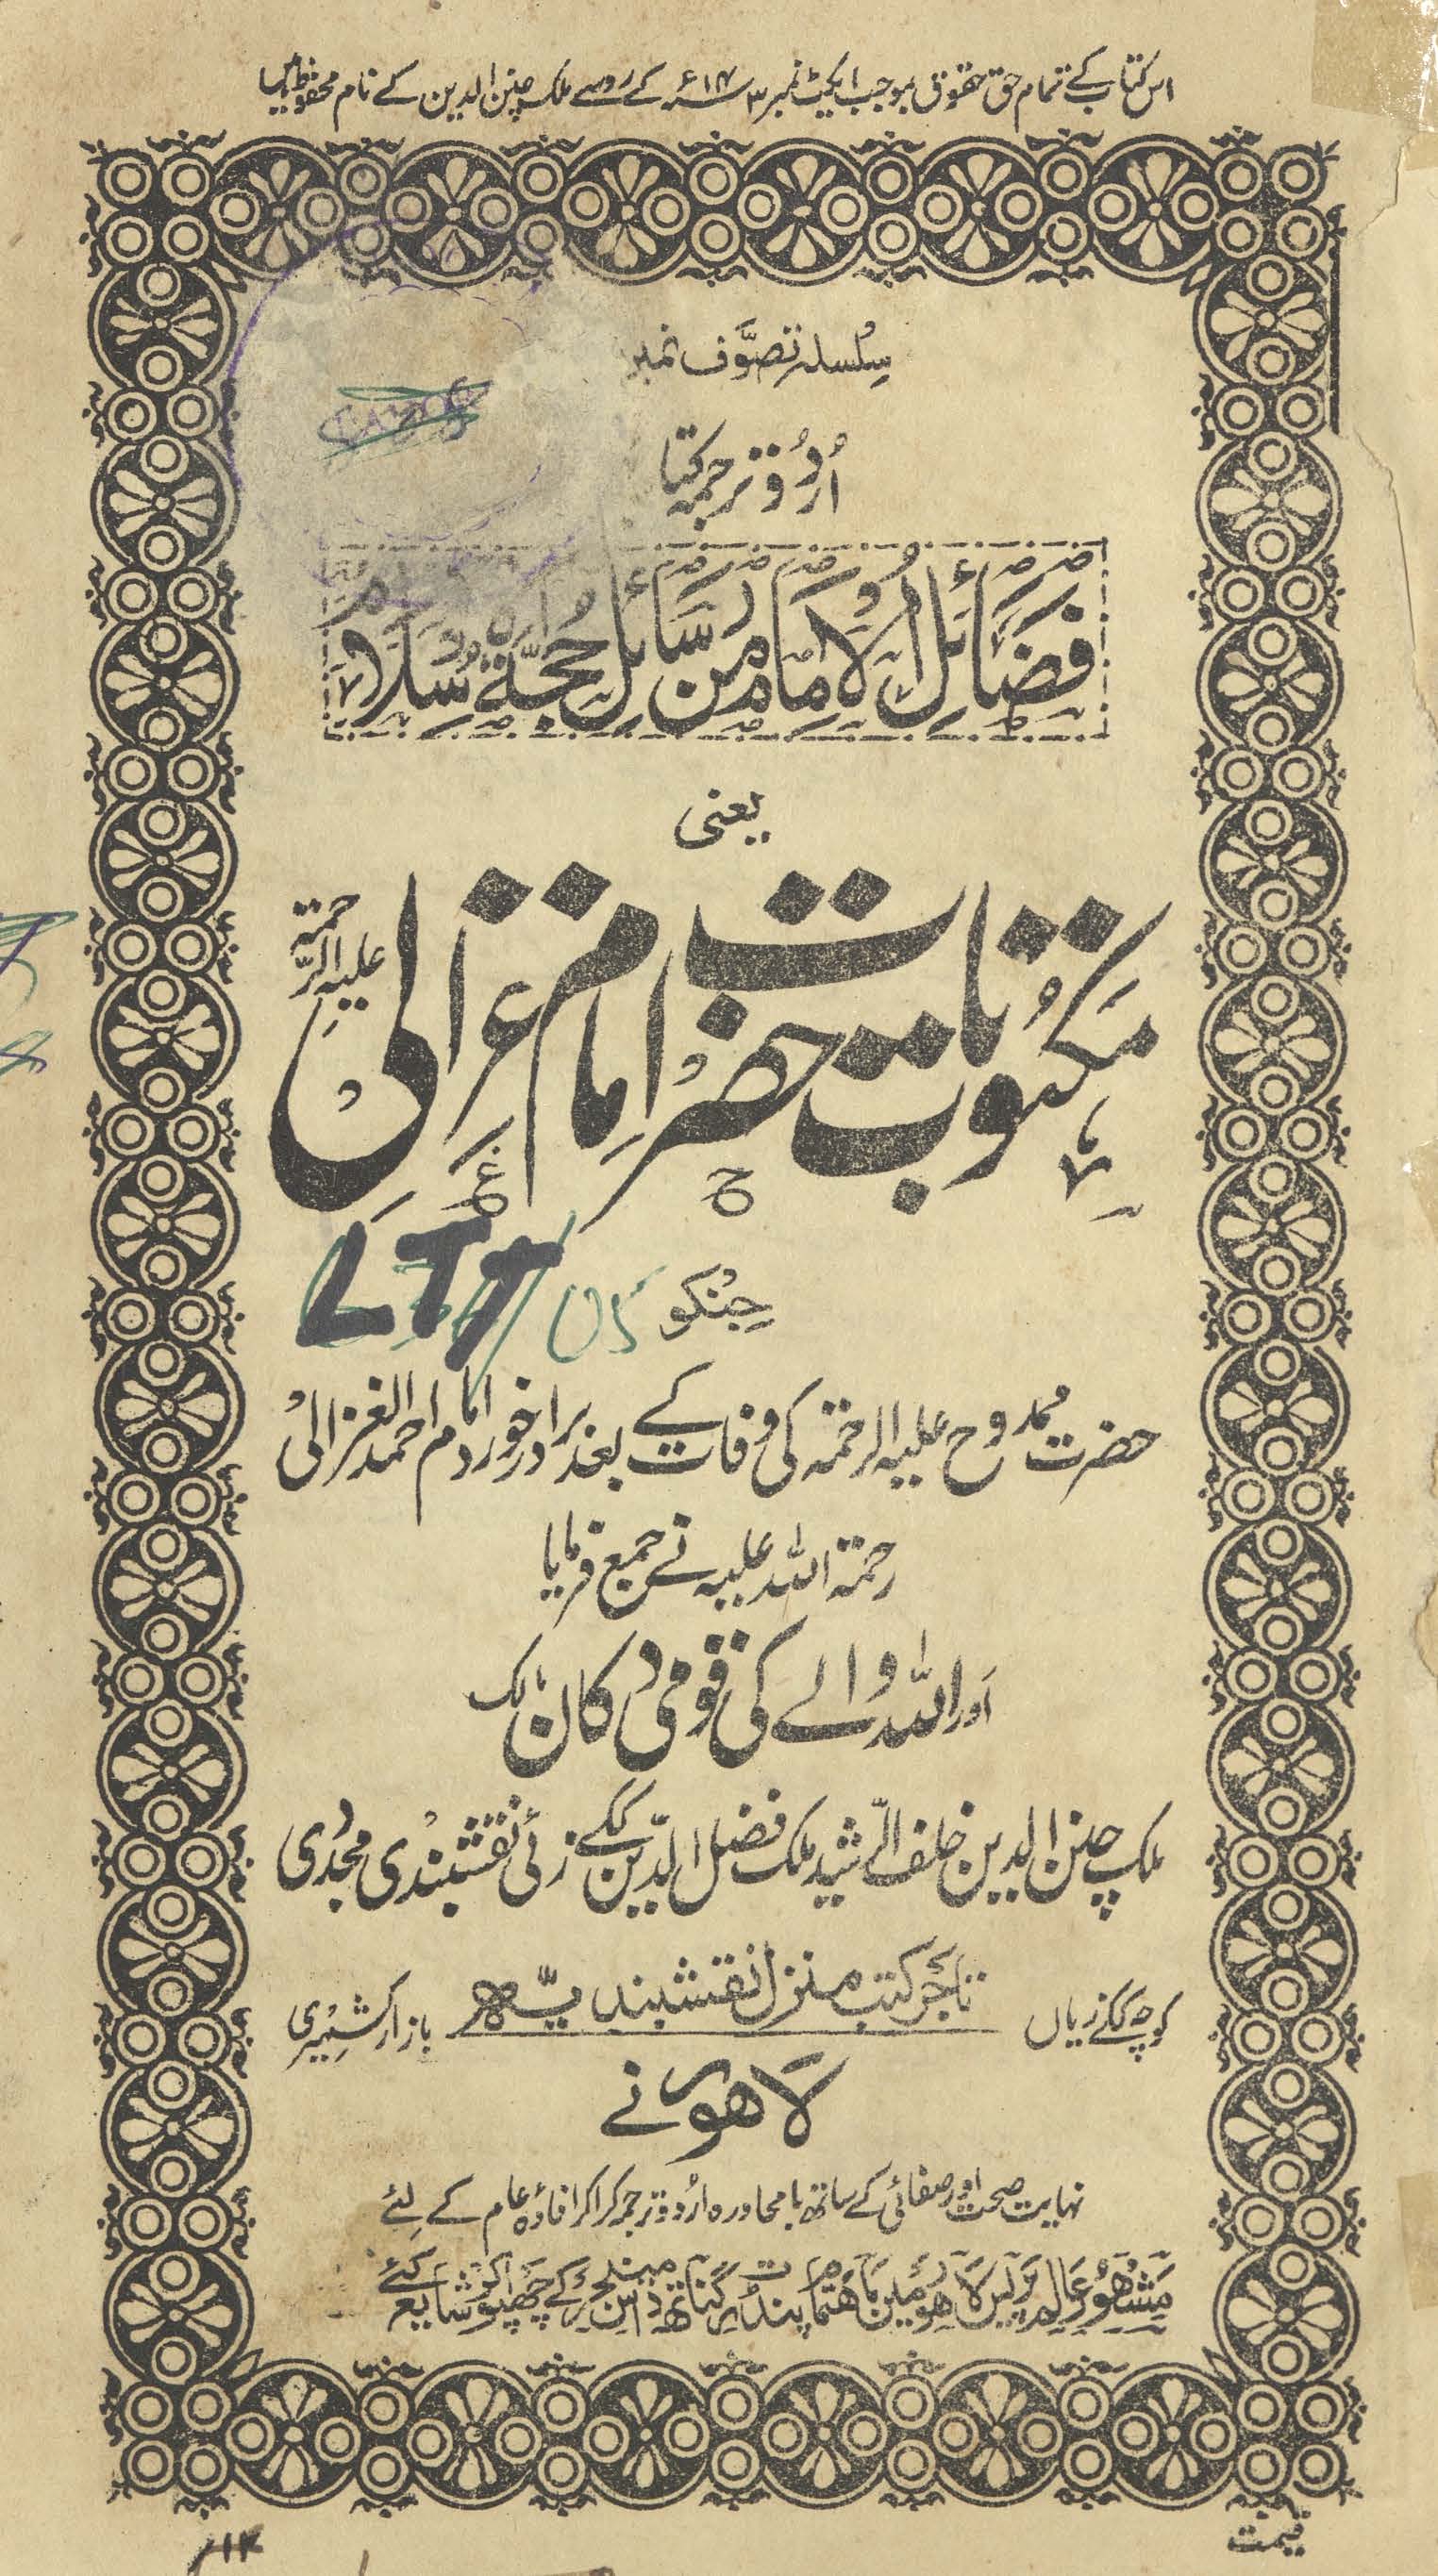 اس کتاب کے تمام حق حقوق بموجب ایکٹ نمبر ۳ ۱۹۱۴ء کے روسے ملک چنن الدین کے نام محفوظ ہیں
سلسلہ تصوف نمبر
اُردو ترجمہ کتاب
فضائل الامام من رسائل حجۃ الاسلام
یعنی
مکتوبات حضرت امام غزالی
رحمۃ علیہ
LTT
05
جنکو
حضرت ممدوح علیہ الرحمۃ کی وفات کے بعد برادر خورد امام احمد الغزالی
رحمۃ اللہ علیہ نے جمع فرمایا
اور اللہ والے کی قومی دکان مالک
ملک چنن الدین خلف الرشید ملک فضل الدین ککے زئی نقشبندی مجددی
تاجر کتب منزل نقشبندیہ
کوچہ ککے زیاں
بازار کشمیری
لاہور نے
نہایت صحت اور صفائی کے ساتھ بامحاورہ اُردو ترجمہ کرا کر افادہ عام کے لئے
مشہور عالم پریس لاہور میں باہتمام پنڈت گناتھ داس مینیجر کے چھپوا کر شایع کئے
قیمت
۱۲/